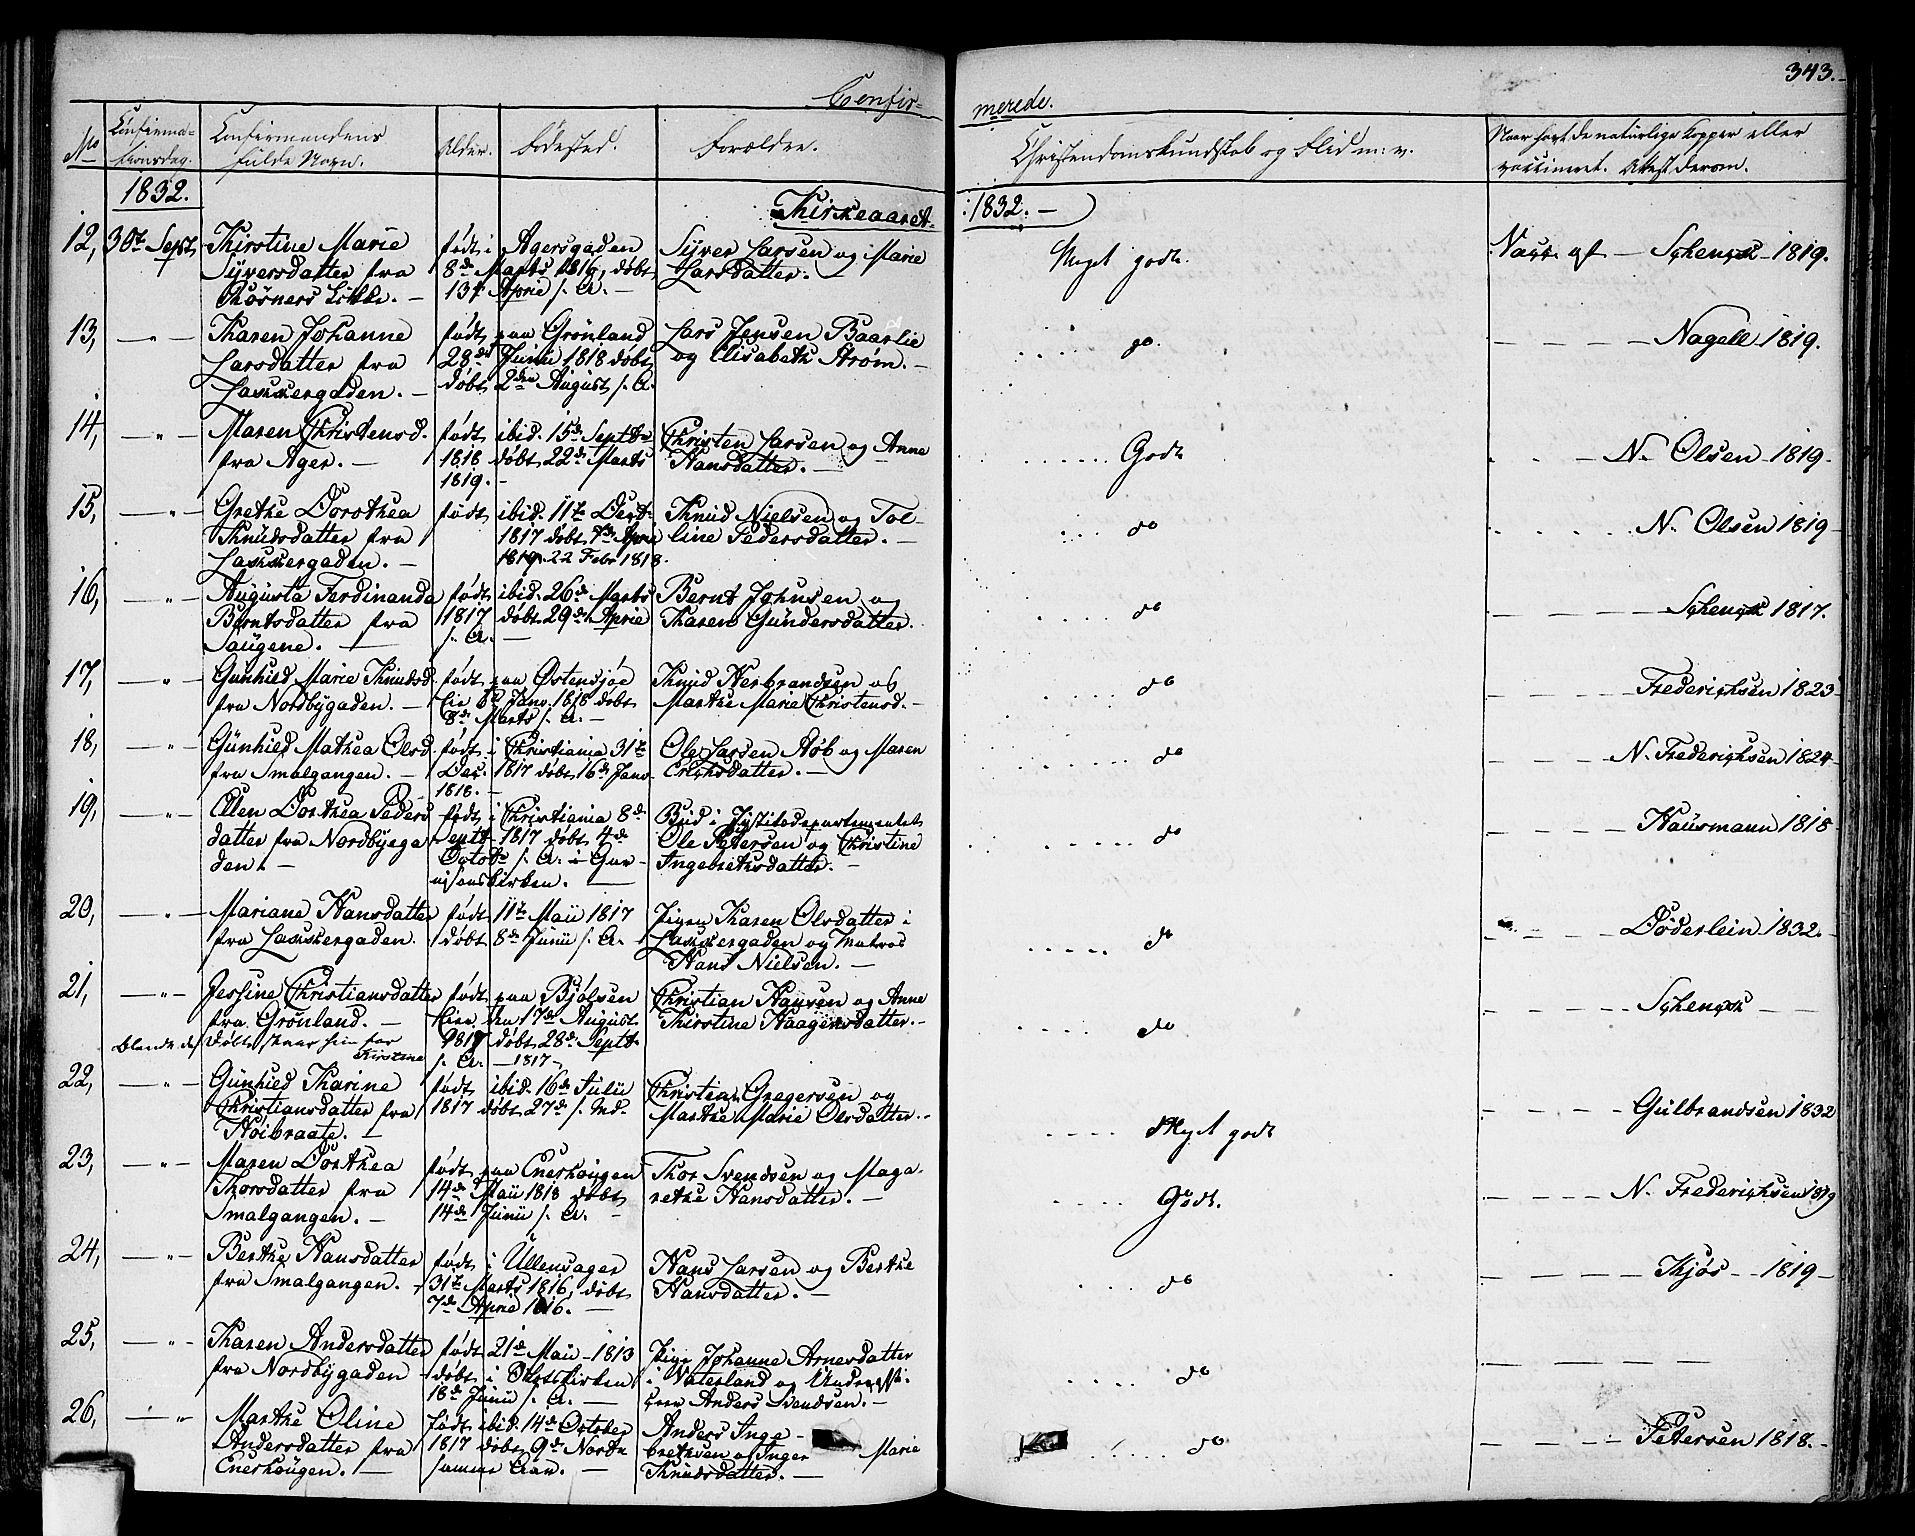 343.
Confir-
merede.
No
Confirma-
tionsdag.
Confirmandens
fulde Navn.
Alder.
Fødested.
Forældre.
Christendomskundskab og Flid m: v.
Naar havt de naturlige Kopper eller
vaccineret. Attest derom.
1832.
Kirkeaaret
1832. —
12, 30te Sept.
Kirstine Marie
Syversdatter fra
Løkke. —
født i Agersgaden
8de Marts 1816, døbt
13de April s. A. —
Syver Larsen og Marie
Larsdatter. —
Meget godt.
Vacc. af — Schenck 1819.
13, — " —
Karen Johanne
Larsdatter fra
Lakkergaden. —
født paa Grønland
28de Junii 1818 døbt
døbt 2den August s. A.
Lars Jensen Baarlie
og Elisabeth Strøm. —
do.
— — — — Nagell 1819.
14, — " —
Maren Christensd.
fra Ager. —
født ibid. 15de Septbr
1818 døbt 22de Marts
1819. —
Christen Larsen og Anne
Hansdatter. —
Godt
— N. Olsen 1819.
15, — " —
Grethe Dorothea
Knudsdatter fra
Lakkergaden. —
født ibid. 11te Decbr
1817 døbt 7de April
1819. 22 Febr 1818.
Knud Nielsen og Tol-
line Pedersdatter. —
do
N. Olsen 1819
16, — " —
Augusta Ferdinanda
Berntsdatter fra
Saugene. —
født ibid. 26de Marts
1817 døbt 29de April
s. A. —
Bernt Johnsen og
Karen Gundersdatter.
do
— — — — Schenck 1817.
17, — " —
Gunhild Marie Knudsd.
fra Nordbygaden. —
født paa Østensjøe
Eie 6te Janv. 1818 døbt
8de Marts s. A. —
Knud Herbrandsen og
Marthe Marie Christensd. —
do
— — — — Frederichsen 1823
18, — " —
Gunhild Mathea Olsd.
fra Smalgangen. —
født i Christiania 31te
Dec. 1817 døbt 16de Janv.
1818. —
Ole Larsen Høb og Maren
Erichsdatter. —
do
— — — N. Frederichsen 1824
19, — " —
Ellen Dorthea Peders
datter fra Nordbyga
den. —
født i Christiania 8de
Septbr 1817 døbt 4de
Octob. s. A. i Gar-
nisonskirken. —
Bud i Justitsdepartementet
Ole Petersen og Christine
Ingebrethsdatter. —
do
— — — — Hausmann 1818
20, — " —
Mariane Hansdatter
fra Lakkergaden.
født 11te Maii 1817
døbt 8de Junii s. A.
Pigen Karen Olsdatter i
Lakkergaden og Matros
Hans Nielsen. —
do
— — — — Döderlein 1832.
21, — " —
Jessine Christiansdatter
fra Grønland. —
født paa Bjølsen
Eie den 17de August
1817 døbt 28de Septbr
s. A. — 1817 —
Christian Hansen og Anne
Kirstine Haagensdatter. —
do
— — — — Schenck — —
Kirstine
22, — " —
Gunhild Karine
Christiansdatter fra
Høibraate. —
født ibid. 16de Julii
1817 døbt 27de s. Md.
Christian Gregersen og
Marthe Marie Olsdatter. —
Meget godt
— — — — Gulbrandsen 1832
23, — " —
Maren Dorthea
Thorsdatter fra
Smalgangen. —
født paa Enerhougen
14de Maii 1818 døbt
14de Junii s. A. —
Thor Svendsen og Maga-
rethe Hansdatter. —
Godt.
— — — — N. Frederichsen 1819
24, — " —
Berthe Hansdatter
fra Smalgangen. —
født i Ullensager
31te Marts 1816, døbt
7de April 1816. —
Hans Larsen og Berthe
Hansdatter. —
do
— — — — Kjøs — 1819 —
25, — " —
Karen Andersdatter
fra Nordbygaden
født 21de Maii 1813
døbt i Osloe Kirken
18de Junii s. A. —
Pige Johanne Arnesdatter
i Vaterland og Underoffi-
ceer Anders Svendsen. —
do
— — — — — —
26, — " —
Marthe Oline
Andersdatter fra
Enerhougen. —
født ibid. 14de October
1817 døbt 9de Novbr
samme Aar. —
Anders Inge-
brethsen og Inger Marie
Knudsdatter. —
do
— — — — Petersen 1818. —